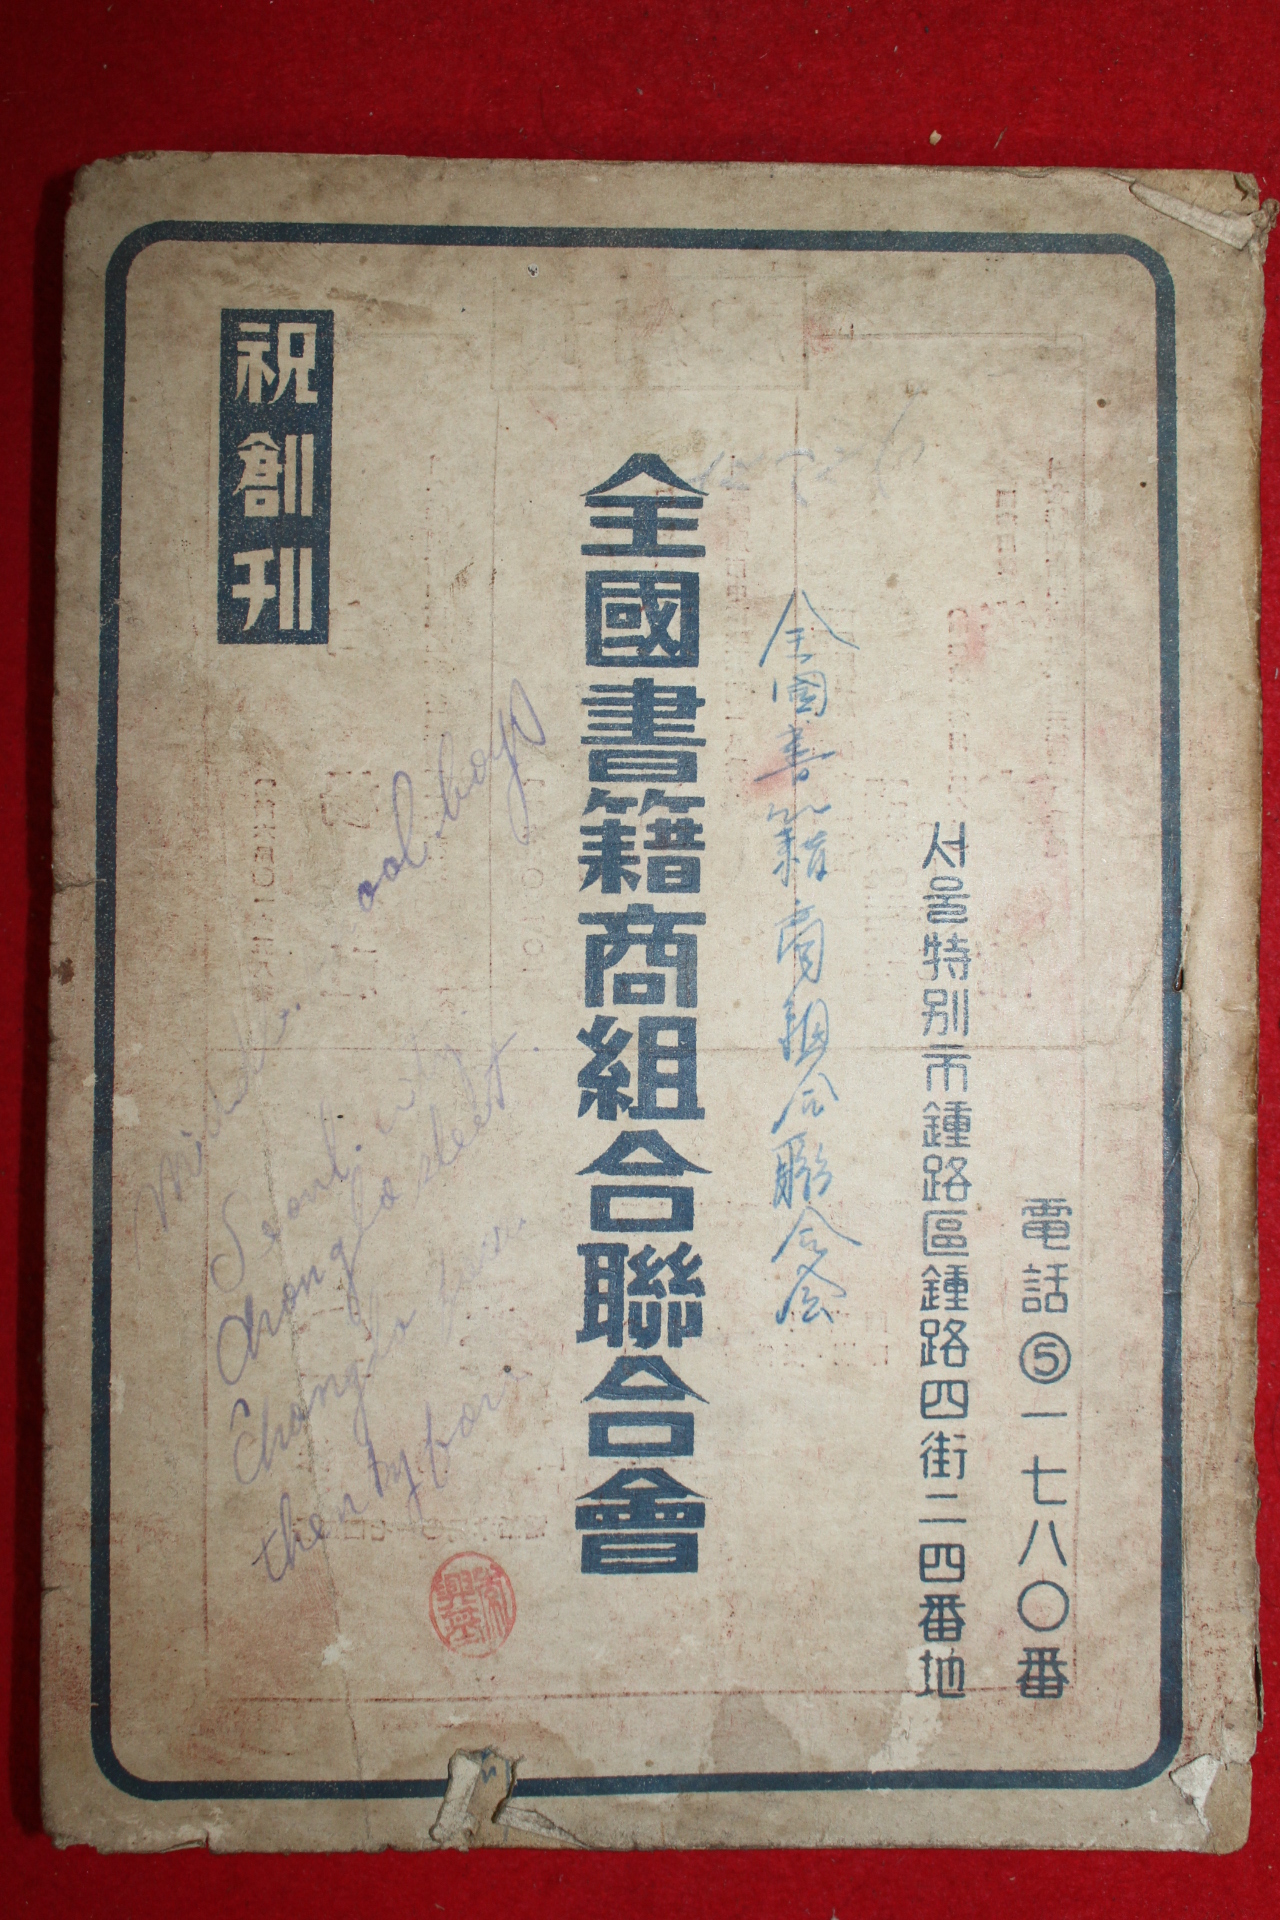 祝創刊
全國書籍商組合聯合會
全國書籍商組合聯合会
서울特別市鍾路區鍾路四街二四番地
電話⑤一七八〇番
ool.boys
Seoul. city
chongLo street.
ChongLo
then by four